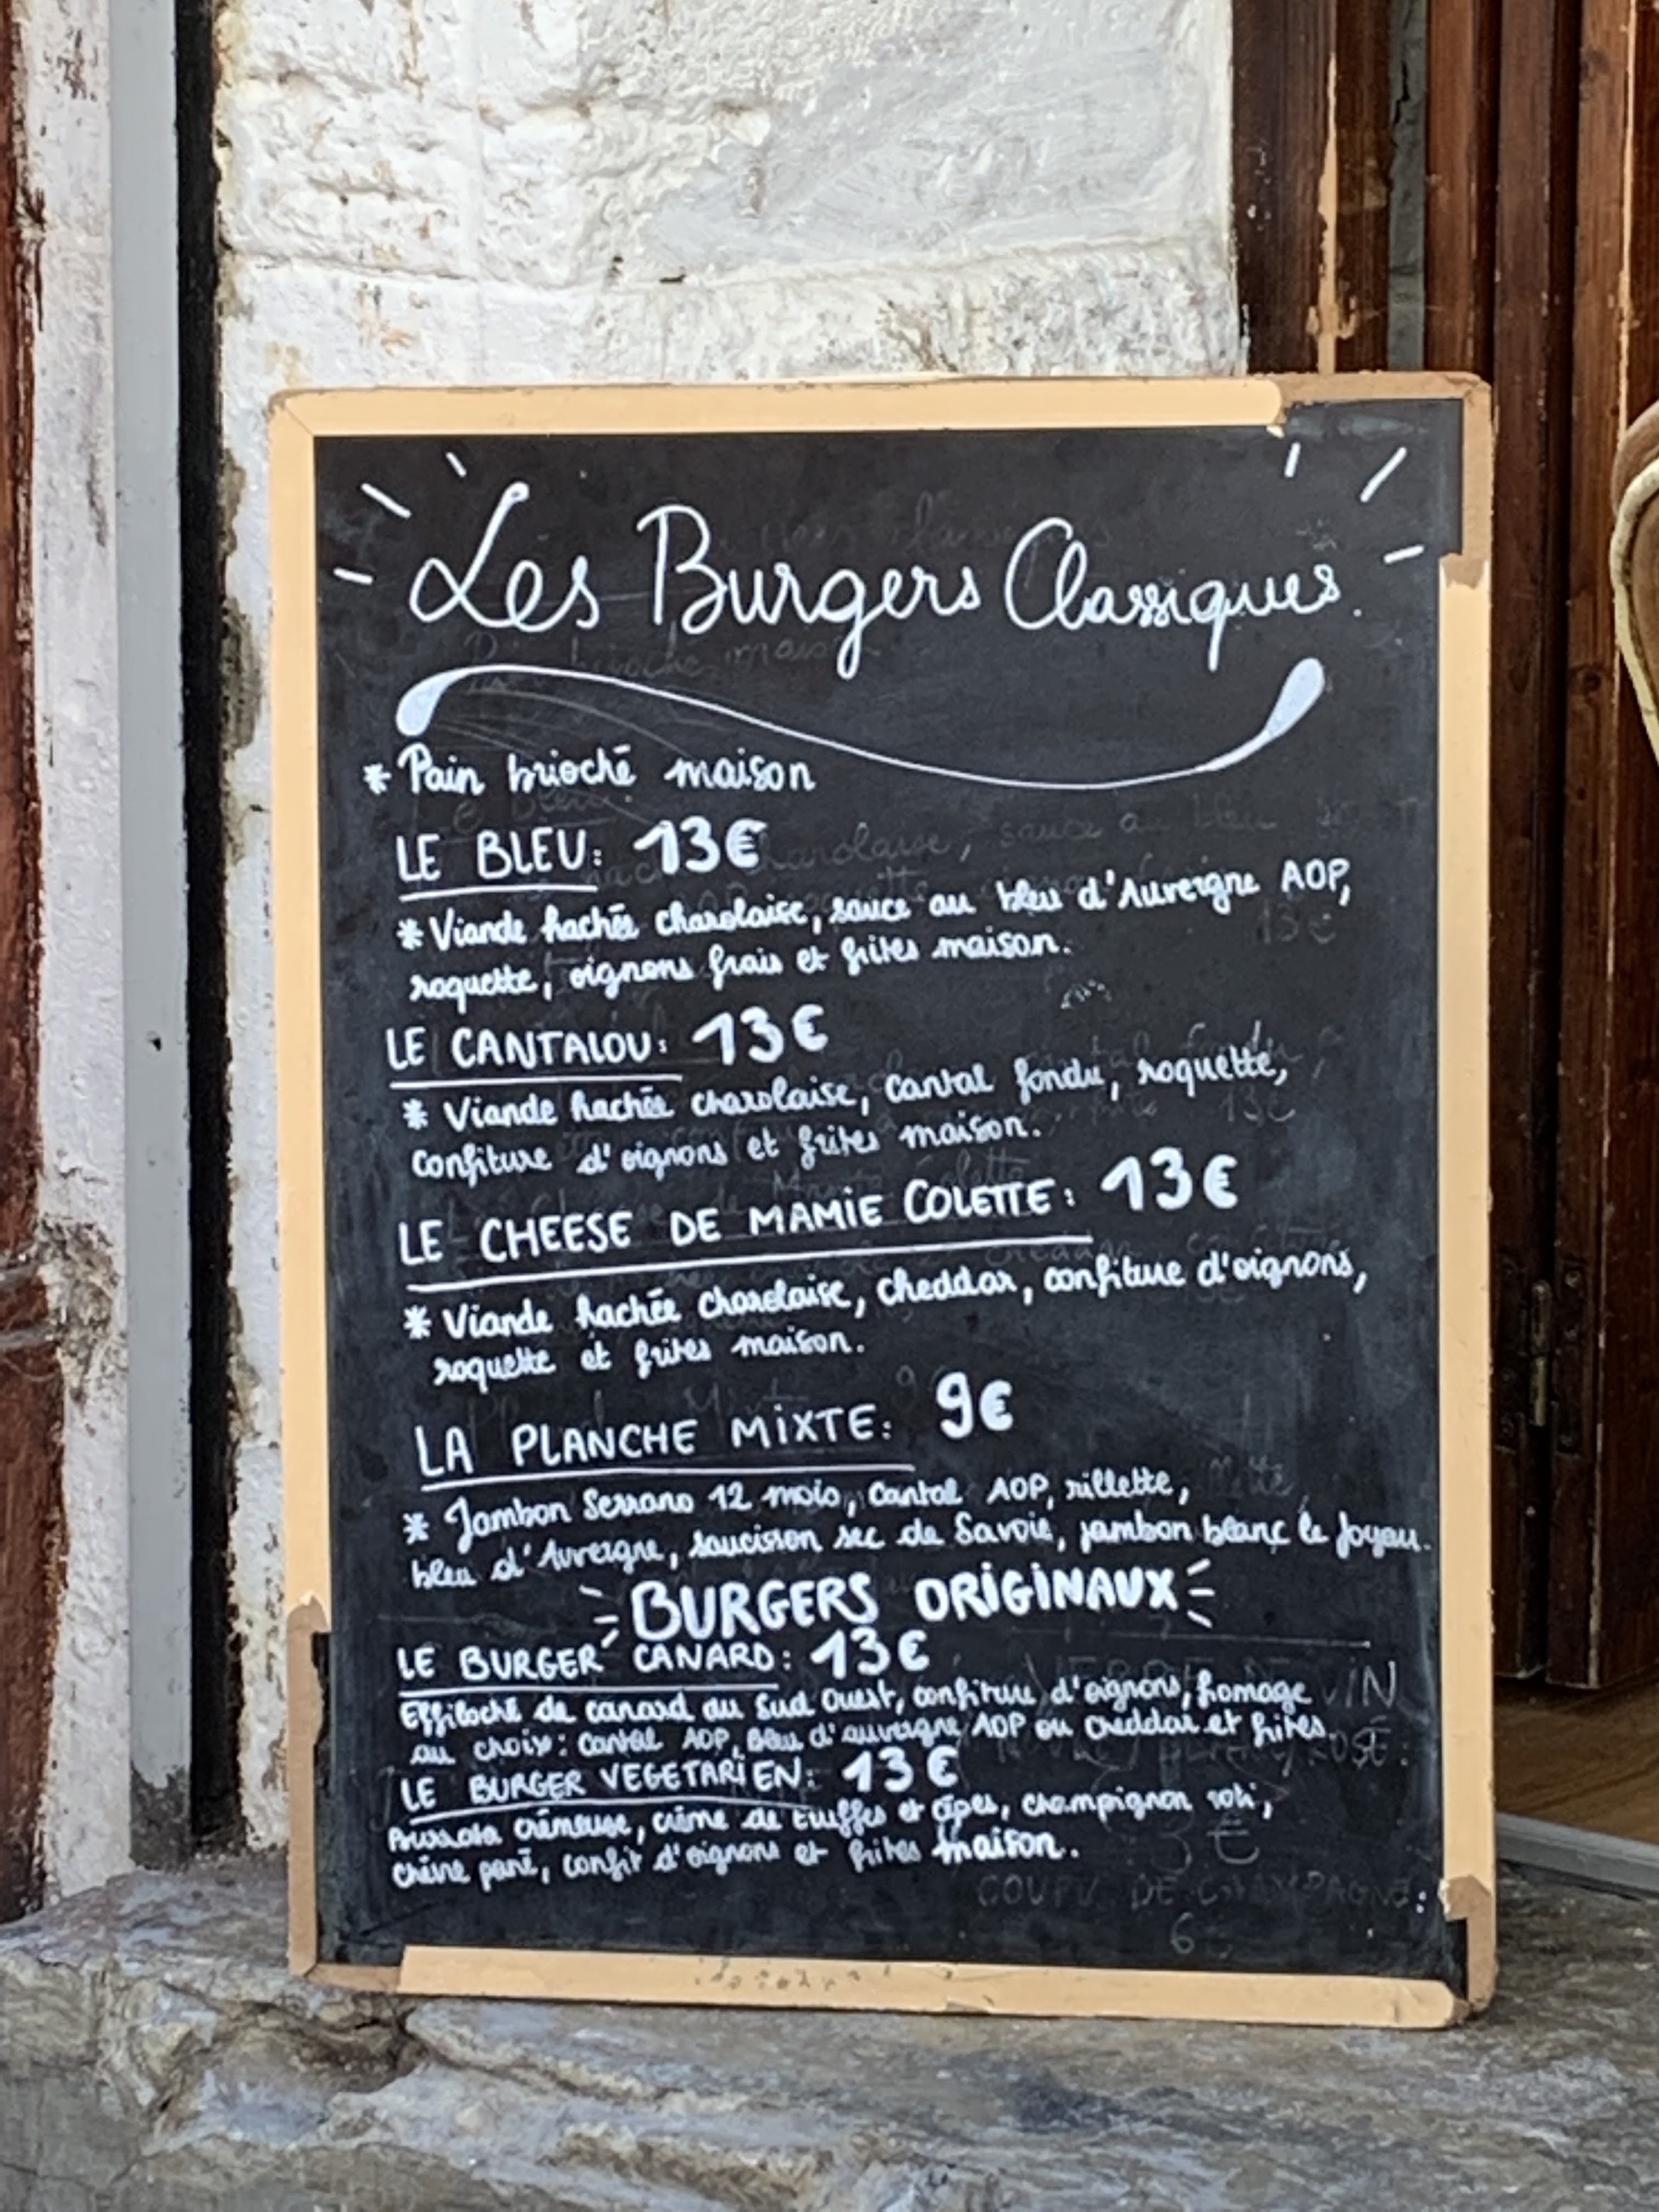 Les Burgers Classiques.
* Pain brioché maison
LE BLEU: 13€
* Viande hachée charolaise, sauce au bleu d'Auvergne AOP,
roquette, oignons frais et frites maison.
LE CANTALOU: 13€
* Viande hachée charolaise, Cantal fondu, roquette,
confiture d'oignons et frites maison.
LE CHEESE DE MAMIE COLETTE: 13€
* Viande hachée charolaise, cheddar, confiture d'oignons,
roquette et frites maison.
LA PLANCHE MIXTE: 9€
* Jambon Serrano 12 mois, Cantal AOP, rillette,
bleu d'Auvergne, saucisson sec de Savoie, jambon blanc le Joyau.
BURGERS ORIGINAUX
LE BURGER CANARD: 13€
Effiloché de canard du Sud Ouest, confiture d'oignons, fromage
au choix: Cantal AOP, Bleu d'auvergne AOP ou Cheddar et frites.
LE BURGER VEGETARIEN: 13€
crémeuse, crème de truffes et cèpes, champignon roti,
chèvre pané, confit d'oignons et frites maison.
VIN
3€
COUPE DE CHAMPAGNE:
6